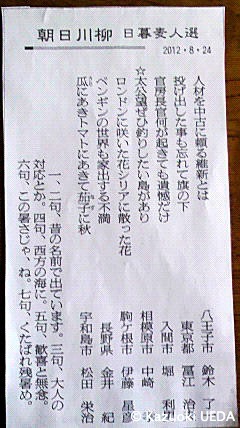 朝日川柳 日暮素人選
2012・8・24
人材を中古に頼る維新とは 八王子市 鈴木 了一
投げ出した事も忘れて旗の下 東京都 冨江 治
官房長官何が起きても遺憾だけ 入間市 堀 利
☆太公望ぜひ釣りしたい島があり 相模原市 中崎
ロンドンに咲いた花シリアに散った花 駒ケ根市 伊藤 星彦
ペンギンの世界も家出する不満 長野県 金井 紀
瓜にあきトマトにあきて茄子に秋 宇和島市 松田 栄治
一、二句、昔の名前で出ています。三句、大人の
対応とか。四句、西方の海に。五句、歓喜と無念。
六句、この暑さじゃ、ね。七句、くたばれ残暑め。
©Kazuoki UEDA